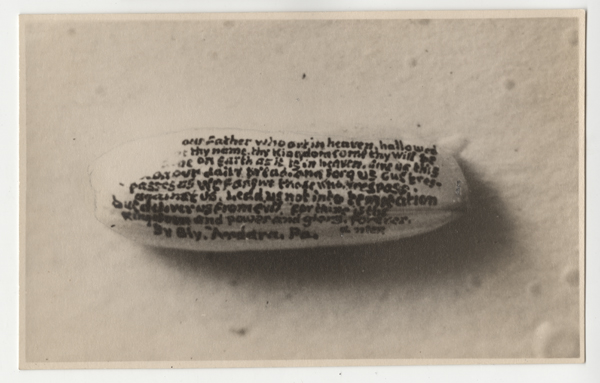 our Father who art in heaven, hallowed
thy name. thy Kingdom come thy will be
on Earth as it is in heaven. give us this
our daily bread. and forgive us our tres-
passes as we forgive those who trespass.
against us. Lead us not into temptation
but deliver us from evil. for thine is the
Kingdom and power and glory. forever.
By Gly. Andara. Pa. a men